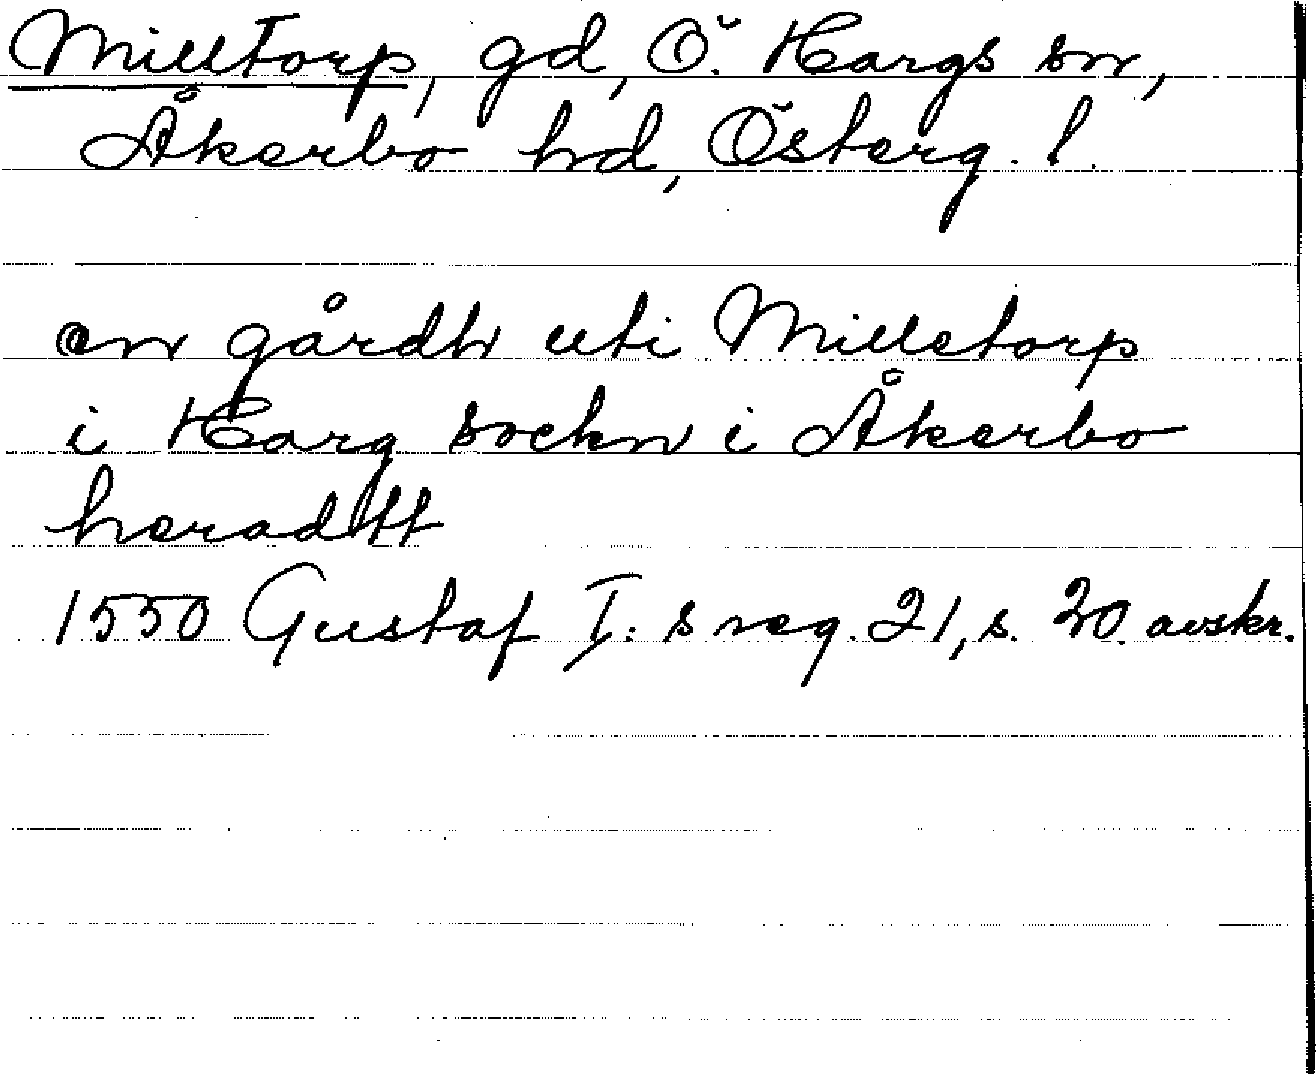 Milltorp, gd, Ö. Hargs sn,
Åkerbo hd, Österg. l.
en gårdh uti Milletorp
i Harg sockn i Åkerbo
heradtt
1550 Gustaf I:s reg. 21, s. 20. avskr.